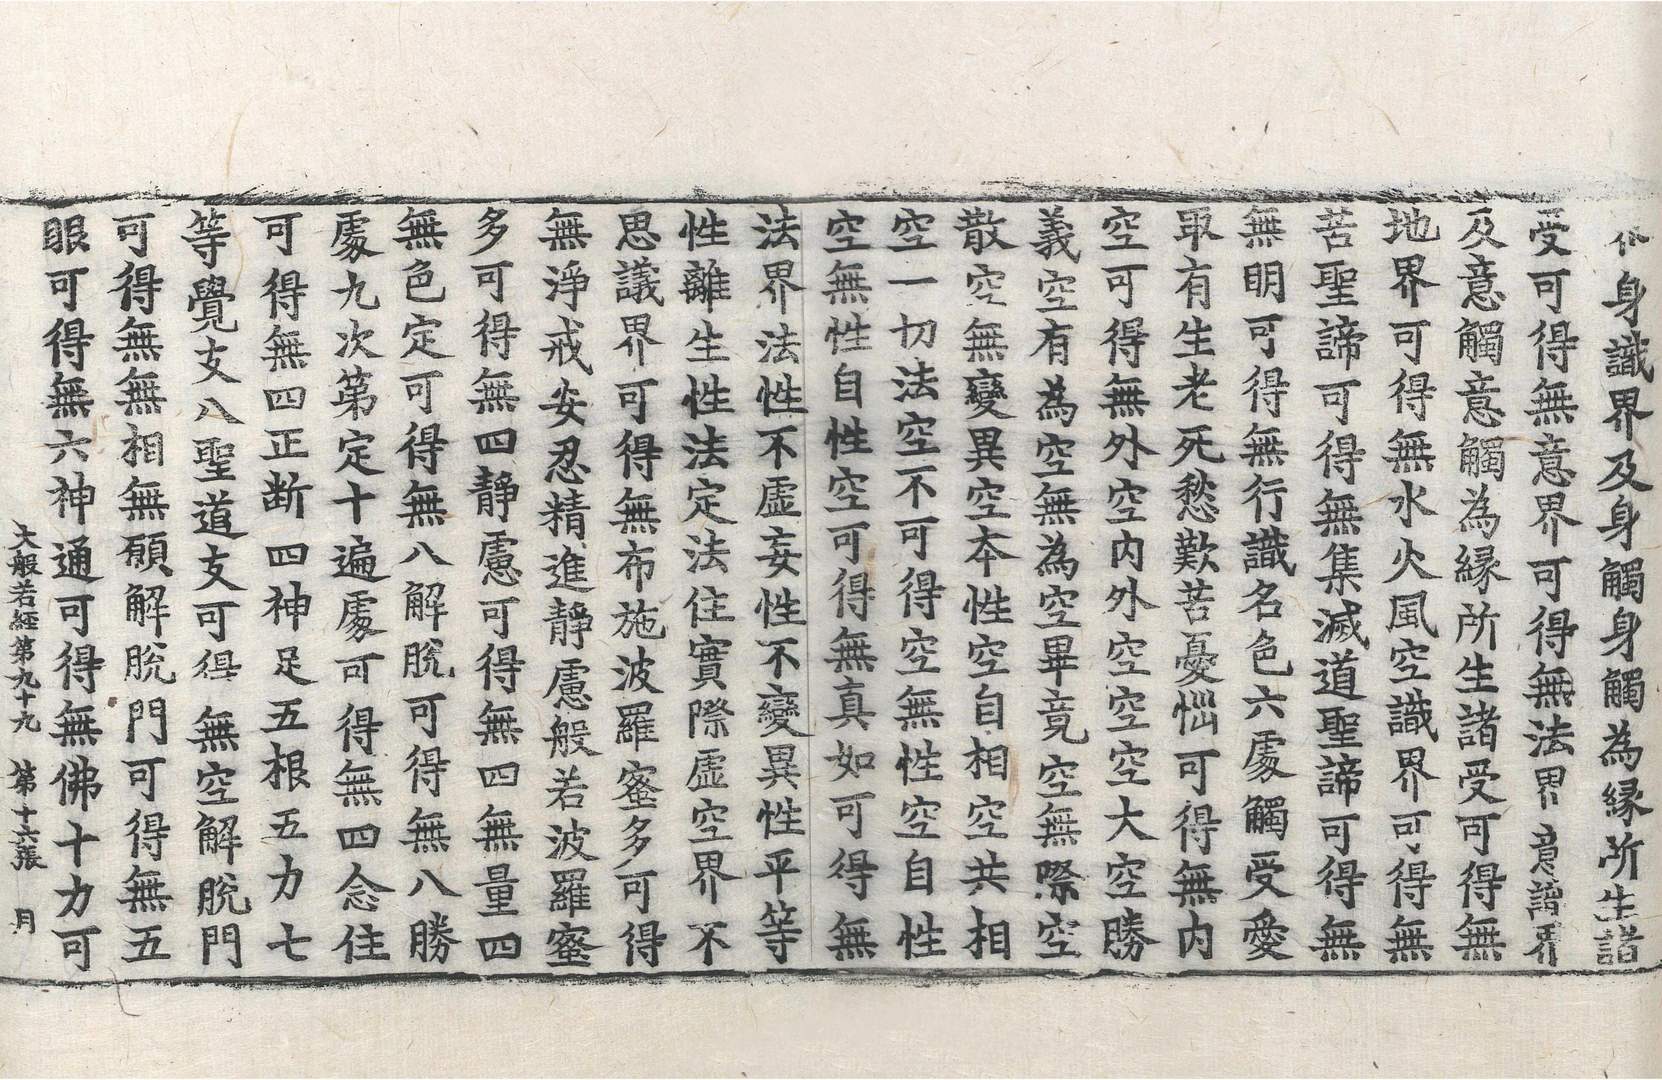 身識界及身觸身觸為縁所生諸
受可得無意界可得無法界意識界
及意觸意觸為縁所生諸受可得無
地界可得無水火風空識界可得無
苦聖諦可得無集滅道聖諦可得無
無明可得無行識名色六處觸受愛
取有生老死愁歎苦憂惱可得無内
空可得無外空内外空空空大空勝
義空有為空無為空畢竟空無際空
散空無變異空本性空自相空共相
空一切法空不可得空無性空自性
空無性自性空可得無真如可得無
法界法性不虛妄性不變異性平等
性離生性法定法住實際虛空界不
思議界可得無布施波羅蜜多可得
無淨戒安忍精進靜慮般若波羅蜜
多可得無四靜慮可得無四無量四
無色定可得無八解脫可得無八勝
處九次第定十遍處可得無四念住
可得無四正断四神足五根五力七
等覺支八聖道支可得無空解脫門
可得無無相無願解脫門可得無五
眼可得無六神通可得無佛十力可
大般若經第九十九 第十六張 月